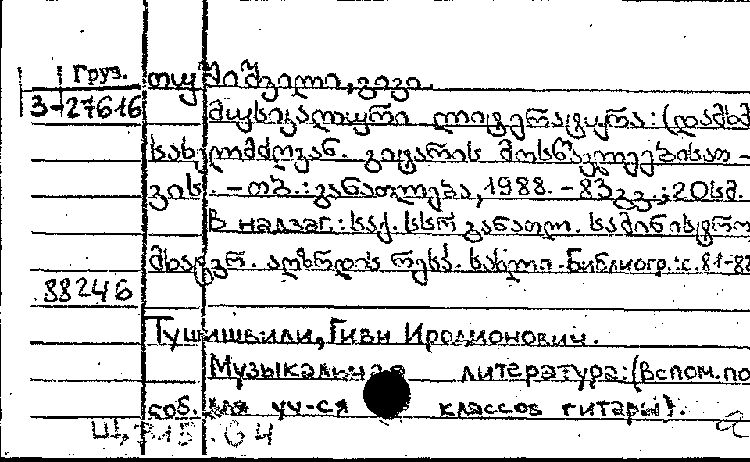 Груз. თუშიშვილი, გივი.
3-27616 მუსიკალური ლიტერატურა: (დამხმ
სახელმძღვან. გიტარის მოსწავლეებისათ-
ვის). - თბ.: განათლება, 1988. - 83 გვ.; 20 სმ.
В надзаг.: საქ. სსრ განათლ. სამინისტრო
მხატვრ. აღზრდის რესპ. სახლი. Библиогр.: с. 81-82
88246
Тушишвили, Гиви Иродионович.
Музыкальная литература: (Вспом. по
соб. для уч-ся классов гитары).
Щ315.64